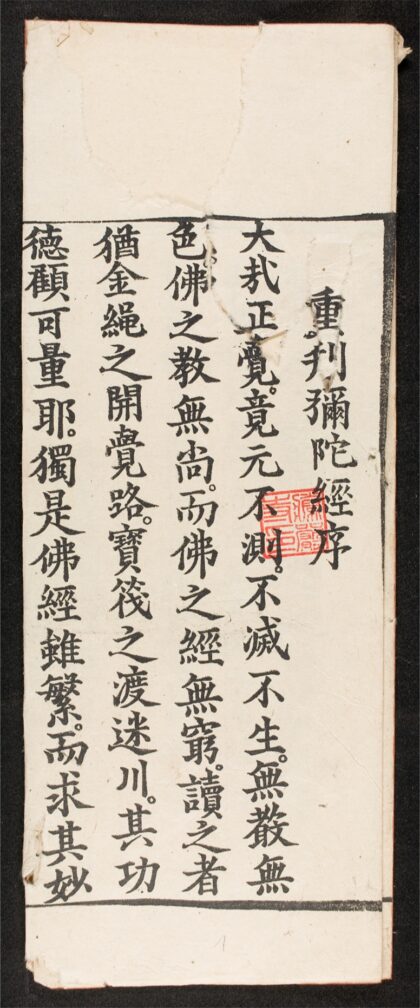 重刋彌陀經序
大哉正覺。竟元不測。不滅不生。無聲無
色。佛之教無尚。而佛之經無窮。讀之者
猶金繩之開覺路。寶筏之渡迷川。其功
德顧可量耶。獨是佛經雖繁。而求其妙